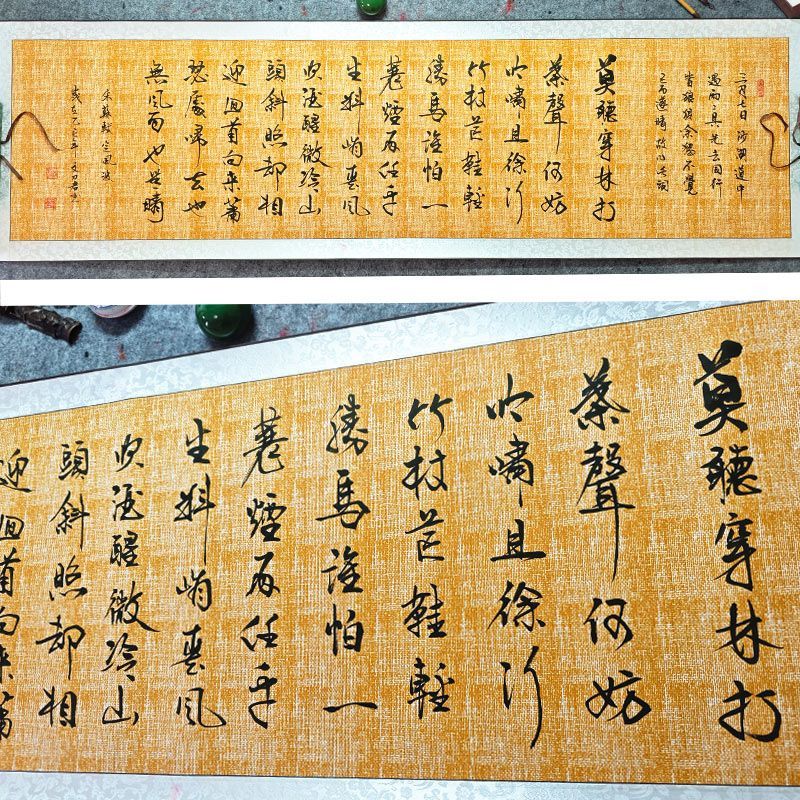 三月七日沙湖道中
遇雨雨具先去同行
皆狼狽余獨不覺
已而遂晴故作此詞
莫聽穿林打
葉聲何妨
吟嘯且徐行
竹杖芒鞋輕
勝馬誰怕一
蓑煙雨任平
生料峭春風
吹酒醒微冷山
頭斜照却相
迎回首向來蕭
瑟處歸去也
無風雨也無晴
宋蘇軾定風波
莫聽穿林打
葉聲何妨
吟嘯且徐行
竹杖芒鞋輕
勝馬誰怕一
蓑煙雨任平
生料峭春風
吹酒醒微冷山
頭斜照却相
迎回首向來蕭